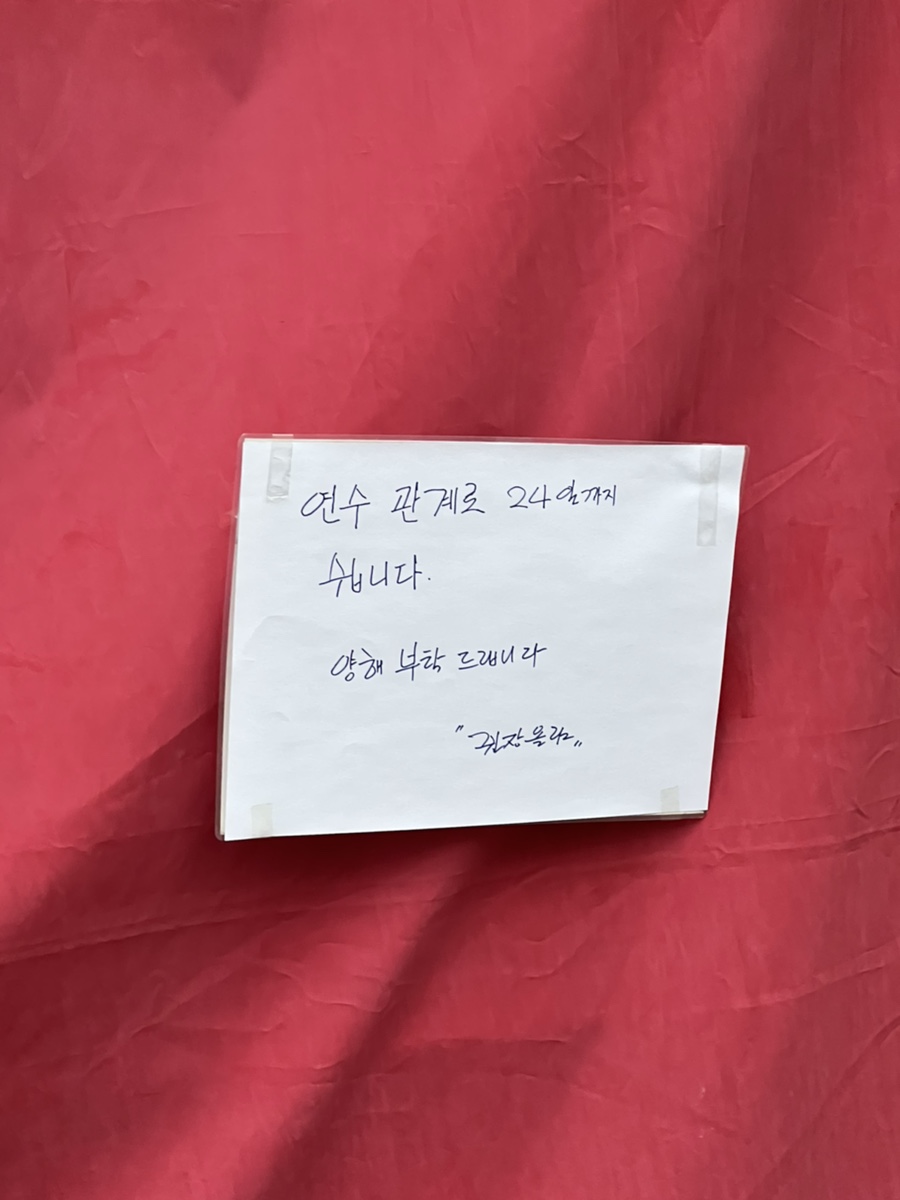 연수 관계로 24일까지
쉽니다.
양해 부탁 드립니다
"쥔장올림"